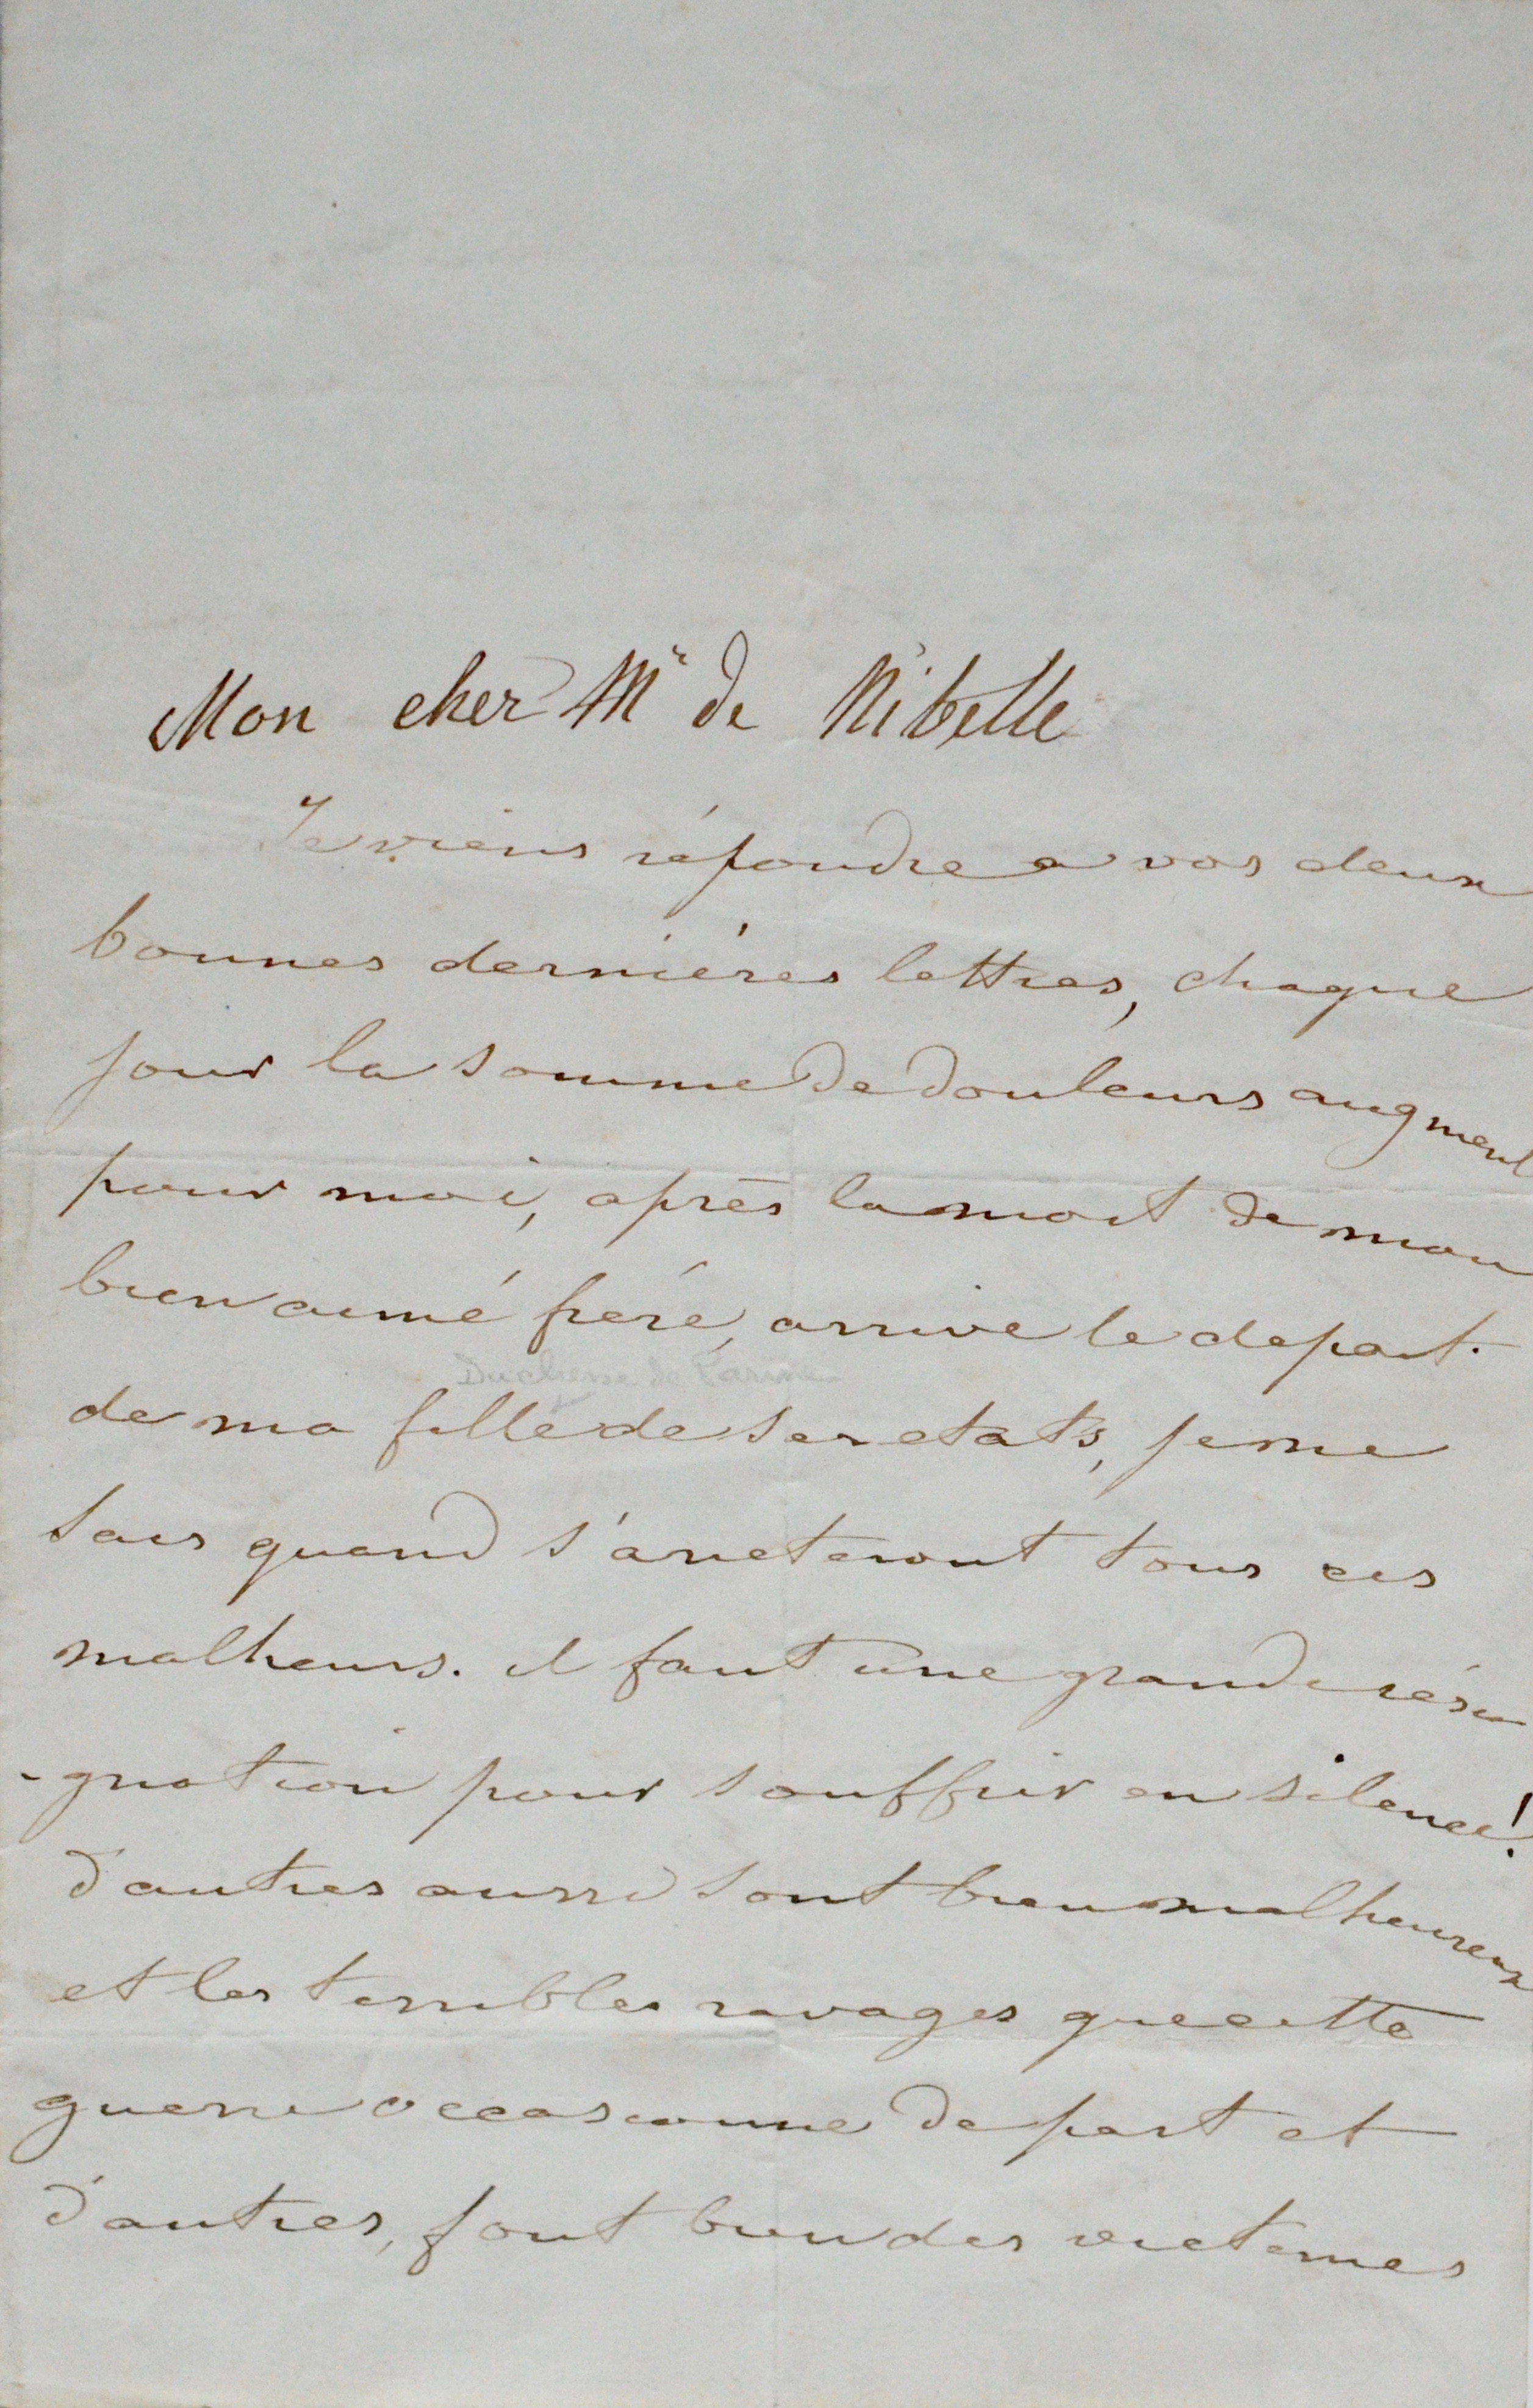 Mon cher Mr de Nibelle
Je viens répondre a vos deux
bonnes derniéres lettres, chaque
jour la somme de douleurs augment
pour moi, aprés la mort de mon
bien aimé freré, arrive le depart.
Duchesse de Parme
de ma fille de ses etats, je ne
sais quand s'arreteront tous ces
malheurs. il faut une grande rési
-gnation pour souffrir en silence!
d'autres aussi sont bien malheureux
et les terribles ravages que cette
guerre occasionne de part et
d'autres, font bien des victimes